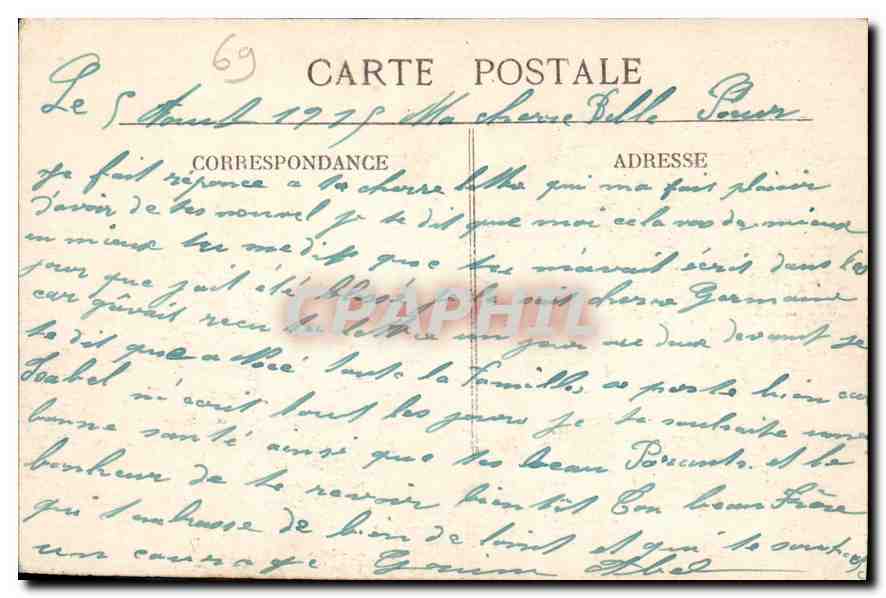 69
CARTE POSTALE
Le 5 Aout 1915 Ma cherre Belle Sœur
CORRESPONDANCE
ADRESSE
Je fait réponce a ta cherre lettre qui ma fait plaisir
d'avoir de tes nouvel je te dit que moi cela vas de mieux
en mieux tu me dit que tu m'avait écrit dans les
jour que jait été blessé je le sait cherre Germaine
car j'avait recu ta lettre un jour ou deux devant je
te dit que a toute la Famille se porte bien car
Isabel m'écrit tout les jours je te souhaite une
bonne santé ainsi que tes beau Parents et le
bonheur de te revoir bientôt Ton beau Frère
qui t'embrasse de bien de loint et qui te souhait
un courage Abel
CPAPHIL